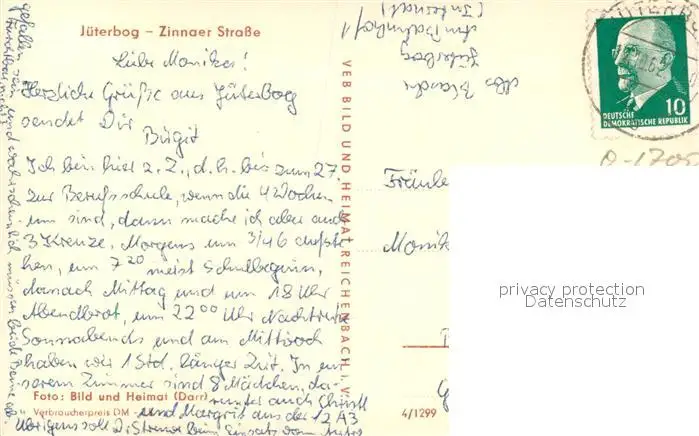 Jüterbog – Zinnaer Straße
Liebe Monika!
Herzliche Grüße aus Jüterbog
sendet Dir
Birgit
Ich bin hier z. Z., d. h. bis zum 27.
zur Berufsschule, wenn die 4 Wochen
um sind, dann mache ich aber auch
3 Kreuze. Morgens um 3/4 6 aufste
hen, um 7 20 meist Schulbeginn,
danach Mittag und um 18 Uhr
Abendbrot, um 22 00 Uhr Nachtruhe
Sonnabends und am Mittwoch
haben wir 1 Std. länger Zeit. In un
serem Zimmer sind 8 Mädchen, da
runter auch Christl
und Margrit aus der 12 A3
Übrigens soll beim Einsatz
gefallen sein und wahrscheinlich müssen beide Beine ab.
Foto: Bild und Heimat (Darr)
Verbraucherpreis DM
VEB BILD UND HEIMAT REICHENBACH i. V.
4/1299
Abs.
Jüterbog
Am Bahnhof 1
(Internat)
10
DEUTSCHE
DEMOKRATISCHE REPUBLIK
Fräule
Monik
privacy protection
Datenschutz